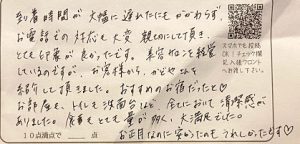 到着時間が大幅に遅れたにもかかわらず、
お電話での対応も大変親切にして頂き、
とても印象が良かったです。美容室を経営
しているのですが、お客様から、かどやさんを
紹介して頂きました。おすすめのお宿だったと♡
お部屋も、トイレも洗面台など、全てにおいて清潔感が
ありました。食事もとても量が多く、大満足でした。
お正月なのに安かったのもうれしかったです♡
スマホでも投稿
OK！チェック後
記入後フロント
へお渡し下さい。
10点満点で 点